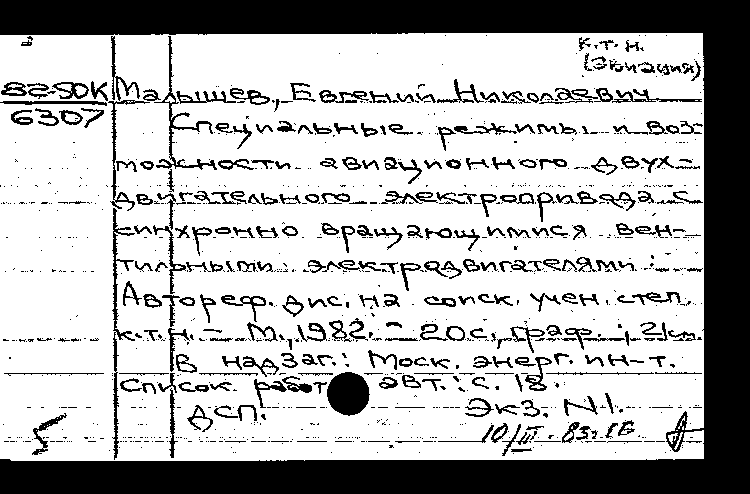 к.т.н.
(Авиация)
82-50К Малышев, Евгений Николаевич
6307 Специальные режимы и воз-
можности авиационного двух-
двигательного электропривода с
синхронно вращающимися вен-
тильными электродвигателями:
Автореф. дис. на соиск. учен. степ.
к.т.н. - М., 1982. - 20 с., граф.; 21 см.
В надзаг.: Моск. энерг. ин-т.
Список работ авт.: с. 18.
ДСП. Экз. N1.
10/III-83г.